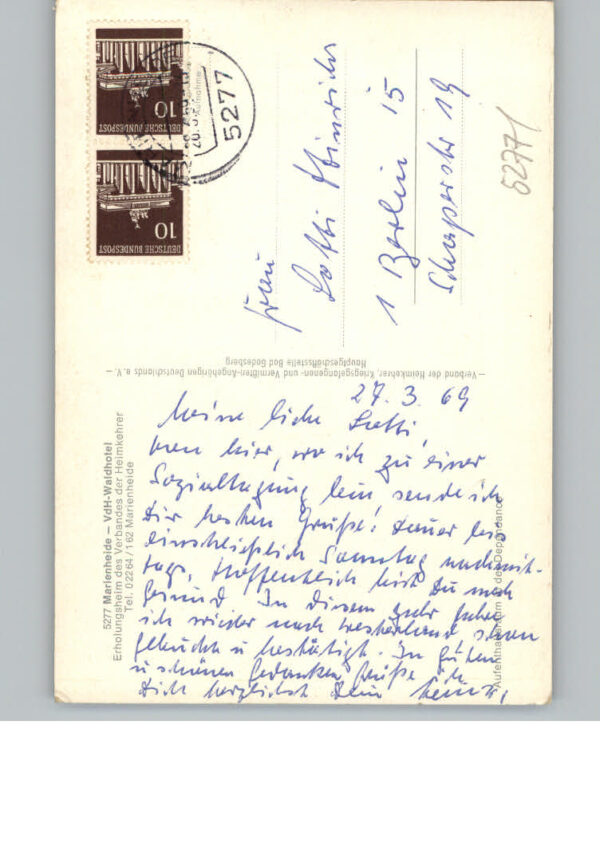 DEUTSCHE BUNDESPOST
10
DEUTSCHE BUNDESPOST
10
5277
Aufnahme
52771
Frau
Lotti Hinrichs
1 Berlin 15
Schaperstr 19
— Verband der Heimkehrer, Kriegsgefangenen und Vermißten-Angehörigen Deutschlands e. V. —
Hauptgeschäftsstelle Bad Godesberg
5277 Marienheide – VdH-Waldhotel
Erholungsheim des Verbandes der Heimkehrer
Tel. 02264 / 162 Marienheide
Aufenthaltsraum in der Dependance
27. 3. 69
Meine liebe Lotti,
von hier, wo ich zu einer
Sozialtagung bin sende ich
Dir besten Grüße! Dauer bis
einschließlich Sonntag nachmit-
tags, Hoffentlich bist Du noch
gesund. In diesem Jahr fahre
ich wieder nach Westerland, schon
gebucht u bestätigt. In guten
u schönen Gedanken Grüße ich
Dich herzlichst Dein